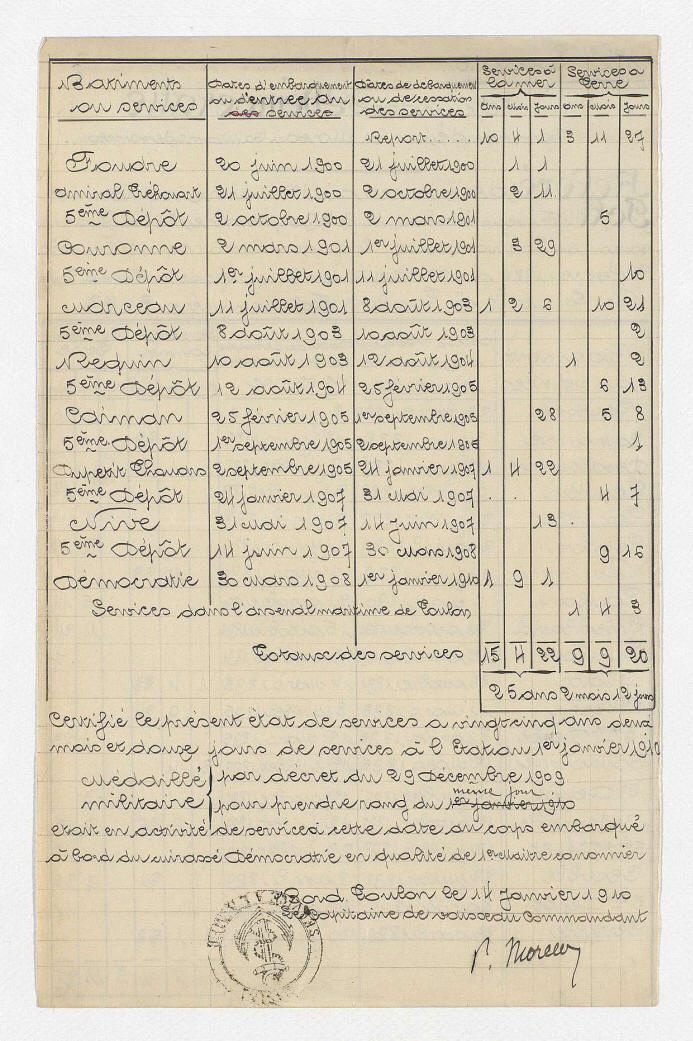 Batiments Dates d'embarquement Dates de débarquement Services à Services a
ou services ou d'entrée au ou de cessation la mer Terre
des services des services ans mois jours ans mois jours
Report..... 10 4 1 3 11 27
Foudre 20 juin 1900 21 juillet 1900 1 1
Amiral Tréhouart 21 juillet 1900 2 octobre 1900 2 11
5ème Dépôt 2 octobre 1900 2 mars 1901 5
Couronne 2 mars 1901 1er juillet 1901 3 29
5ème Dépôt 1er juillet 1901 11 juillet 1901 10
Marceau 11 juillet 1901 8 août 1903 1 2 6 10 21
5ème Dépôt 8 août 1903 10 août 1903 2
Requin 10 août 1903 12 août 1904 1 2
5ème Dépôt 12 août 1904 25 février 1905 6 13
Caïman 25 février 1905 1er septembre 1905 28 5 8
5ème Dépôt 1er septembre 1905 2 septembre 1905 1
Dupetit Thouars 2 septembre 1905 24 janvier 1907 1 4 22
5ème Dépôt 24 janvier 1907 31 Mai 1907 . . 4 7
Nive 31 Mai 1907 14 Juin 1907 13 .
5ème Dépôt 14 juin 1907 30 Mars 1908 9 16
Démocratie 30 Mars 1908 1er janvier 1910 1 9 1
Services dans l'arsenal maritime de Toulon 1 4 3
Totaux des services 15 4 22 9 9 20
25 ans 2 mois 12 jours
Certifié le présent état de services a vingt cinq ans deux
mois et douze jours de services à l'Etat au 1er janvier 1910
Médaillé par décret du 29 Décembre 1909
même jour
militaire pour prendre rang du 1er janvier 1910
était en activité de service à cette date au corps embarqué
à bord du cuirassé Démocratie en qualité de 1er Maître canonnier
Bord Toulon le 14 Janvier 1910
Le Capitaine de vaisseau Commandant